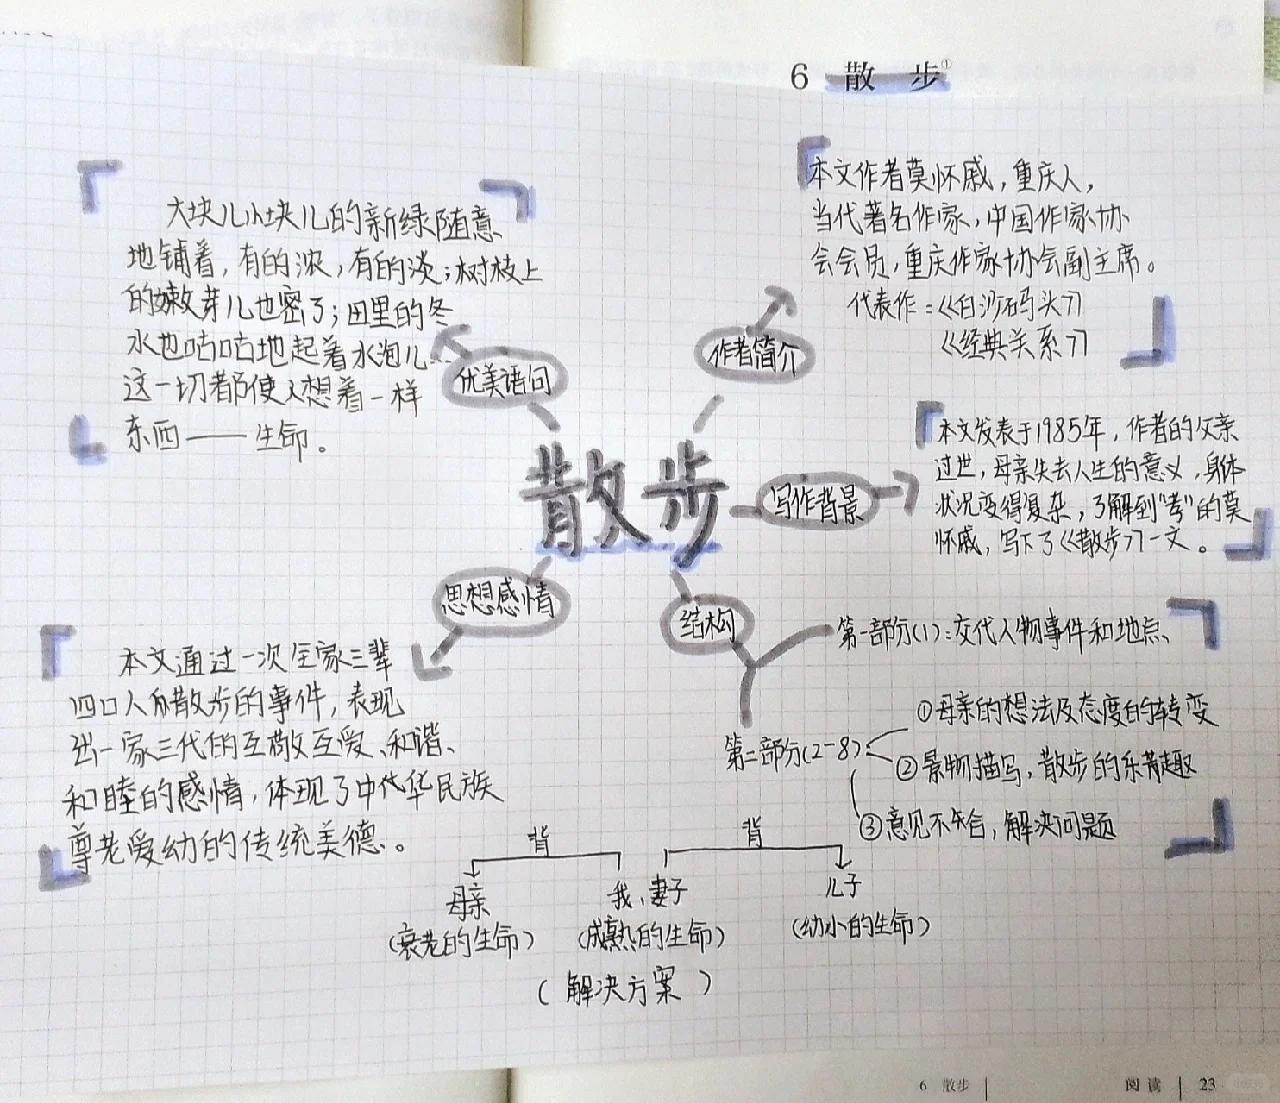 6 散步①
大块儿小块儿的新绿随意
地铺着，有的浓，有的淡；树枝上
的嫩芽儿也密了；田里的冬
水也咕咕地起着水泡儿……
这一切都使人想着一样
东西——生命。
优美语句
本文作者莫怀戚，重庆人，
当代著名作家，中国作家协
会会员，重庆作家协会副主席。
代表作：《白沙码头》
《经典关系》
作者简介
散步
本文发表于1985年，作者的父亲
过世，母亲失去人生的意义，身体
状况变得复杂，了解到“孝”的莫
怀戚，写下了《散步》一文。
写作背景
思想感情
本文通过一次全家三辈
四口人散步的事件，表现
出一家三代的互敬互爱、和谐、
和睦的感情，体现了中华民族
尊老爱幼的传统美德。
结构
第一部分(1)：交代人物事件和地点、
第二部分(2-8)：
①母亲的想法及态度的转变
②景物描写，散步的乐趣
③意见不合，解决问题
背 背
母亲 我，妻子 儿子
(衰老的生命) (成熟的生命) (幼小的生命)
(解决方案)
6 散步 | 阅读 | 23